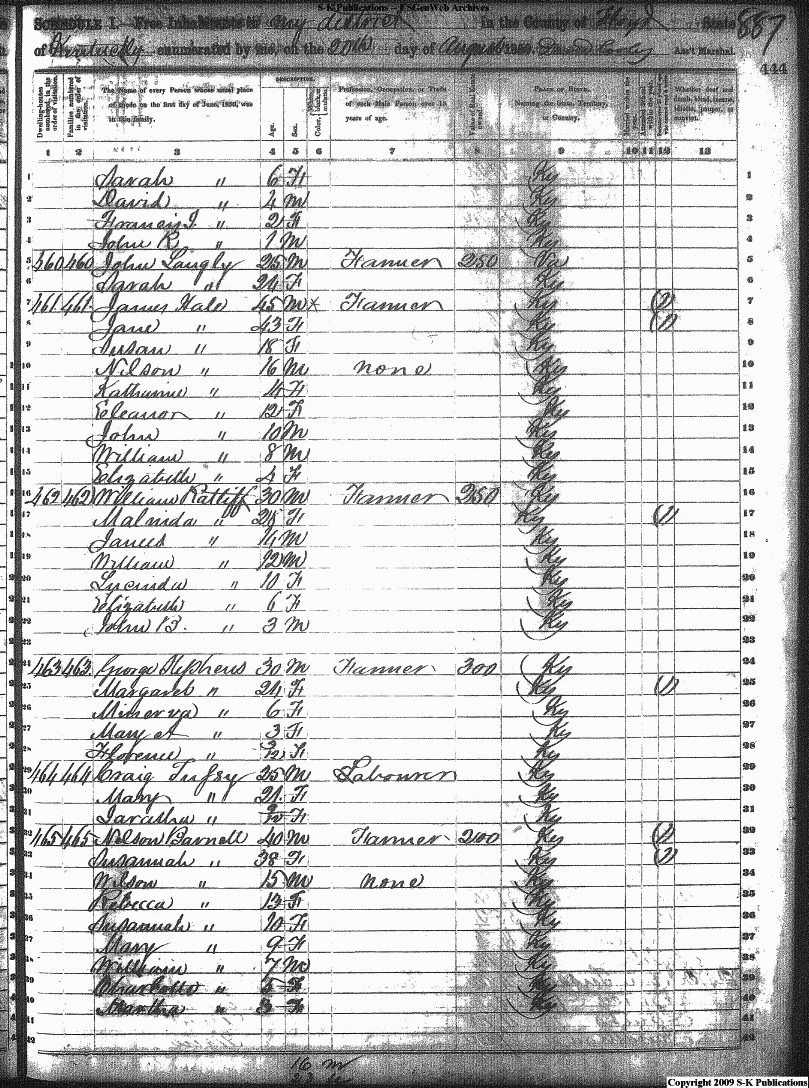 S-K Publications - USGenWeb Archives
SCHEDULE I.—Free Inhabitants in My district in the County of Floyd State
of Kentucky enumerated by me, on the 20th day of August 1850. Ass't Marshal.
887
444
Dwelling-houses numbered, in the order of visitation.
Families numbered in the order of visitation.
The Name of every Person whose usual place of abode on the first day of June, 1850, was in this family.
DESCRIPTION.
Age.
Sex.
Color,
Profession, Occupation, or Trade of each Male Person over 15 years of age.
Value of Real Estate owned.
PLACE OF BIRTH.
Naming the State, Territory, or Country.
Married within the year.
Whether deaf and dumb, blind, insane, idiotic, pauper, or convict.
1 2 3 4 5 6 7 8 9 10 11 12 13
1 Sarah " 6 F Ky 1
2 David " 4 M Ky 2
3 Francis J " 2 F Ky 3
4 John R " 1 M Ky 4
5 460 460 John Langly 25 M Farmer 250 Va 5
6 Sarah " 24 F Ky 6
7 461 461 James Hale 45 M x Farmer Ky (1) 7
8 Jane " 43 F Ky (1) 8
9 Susan " 18 F Ky 9
10 Nilson " 16 M none Ky 10
11 Katharine " 14 F Ky 11
12 Eleanor " 12 F Ky 12
13 John " 10 M Ky 13
14 William " 8 M Ky 14
15 Elizabeth " 4 F Ky 15
16 462 462 William Ratliff 30 M Farmer 250 Ky 16
17 Malinda " 25 F Ky (1) 17
18 James " 14 M Ky 18
19 William " 12 M Ky 19
20 Lucinda " 10 F Ky 20
21 Elizabeth " 6 F Ky 21
22 John B. " 3 M Ky 22
23 23
24 463 463 George Stephens 30 M Farmer 300 Ky 24
25 Margaret " 24 F Ky (1) 25
26 Minerva " 6 F Ky 26
27 Mary A " 3 F Ky 27
28 Florence " 3/12 F Ky 28
29 464 464 Craig 25 M Labourer Ky 29
30 Mary " 21 F Ky 30
31 " F Ky 31
32 465 465 Nelson Barnett 40 M Farmer 200 Ky (1) 32
33 Susannah " 38 F Ky (1) 33
34 Wilson " 15 M none Ky 34
35 Rebecca " 13 F Ky 35
36 Susannah " 10 F Ky 36
37 Mary " 9 F Ky 37
38 William " 7 M Ky 38
39 Charlotte " 5 F Ky 39
40 Martha " 3 F Ky 40
41 41
42 42
16 M
Copyright 2009 S-K Publications